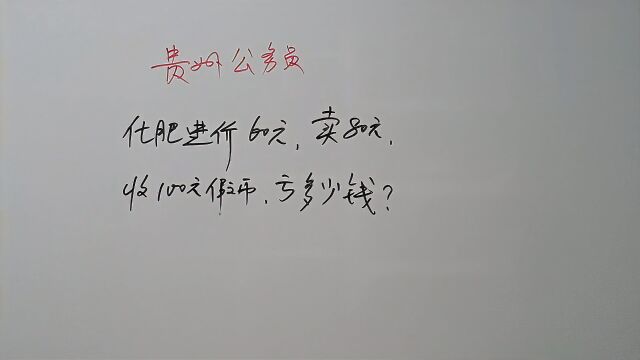 贵州公务员
化肥进价60元,卖80元,
收100元假币,亏多少钱?